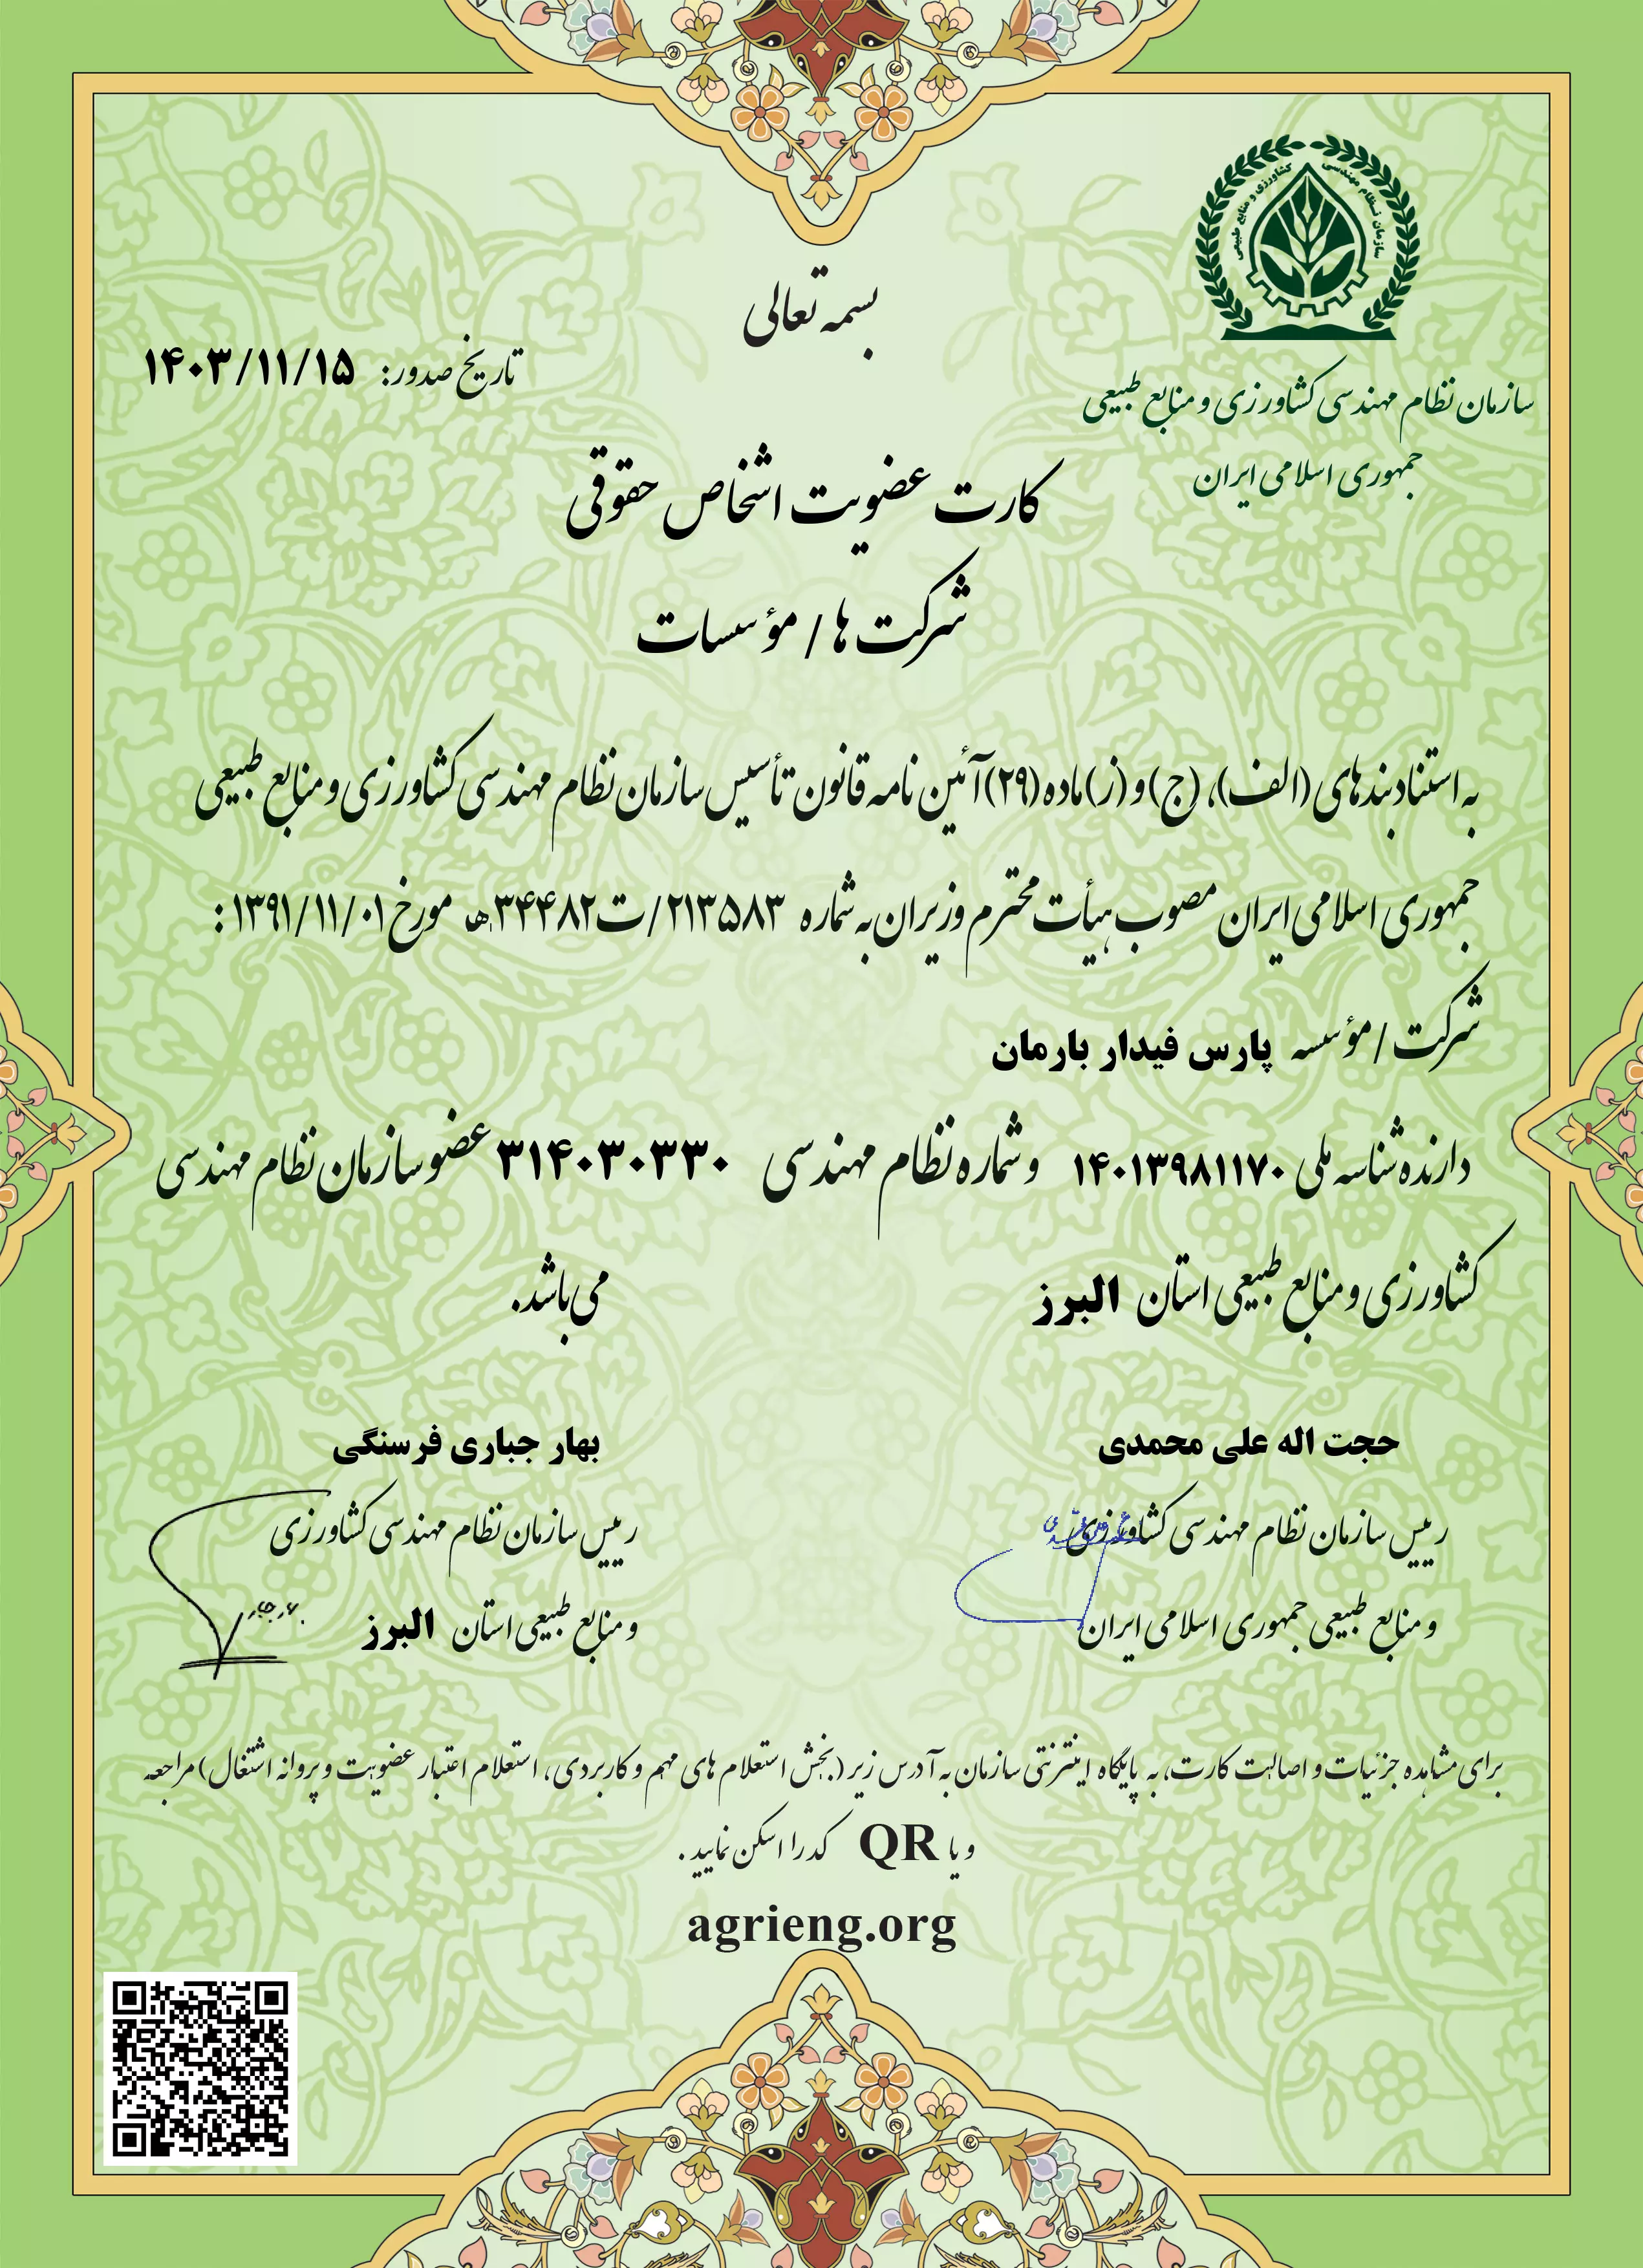 سازمان نظام مهندسی کشاورزی و منابع طبیعی
بسمه تعالی
سازمان نظام مهندسی کشاورزی و منابع طبیعی
جمهوری اسلامی ایران
تاریخ صدور: ۱۴۰۳/۱۱/۱۵
کارت عضویت اشخاص حقوقی
شرکت ها / مؤسسات
به استناد بندهای (الف)، (ج) و (ز) ماده (۲۹) آئین نامه قانون تأسیس سازمان نظام مهندسی کشاورزی و منابع طبیعی
جمهوری اسلامی ایران مصوب هیأت محترم وزیران به شماره ۲۱۳۵۸۳/ت۳۴۴۸۲ه مورخ ۱۳۹۱/۱۱/۰۱ :
شرکت / مؤسسه پارس فیدار بارمان
دارنده شناسه ملی ۱۴۰۱۳۹۸۱۱۷۰ و شماره نظام مهندسی ۳۱۴۰۳۰۳۳۰ عضو سازمان نظام مهندسی
کشاورزی و منابع طبیعی استان البرز می باشد.
حجت اله علی محمدی
رییس سازمان نظام مهندسی کشاورزی
و منابع طبیعی جمهوری اسلامی ایران
بهار جباری فرسنگی
رییس سازمان نظام مهندسی کشاورزی
و منابع طبیعی استان البرز
برای مشاهده جزئیات و اصالت کارت، به پایگاه اینترنتی سازمان به آدرس زیر (بخش استعلام های مهم و کاربردی، استعلام اعتبار عضویت و پروانه اشتغال) مراجعه
و یا QR کد را اسکن نمایید .
agrieng.org